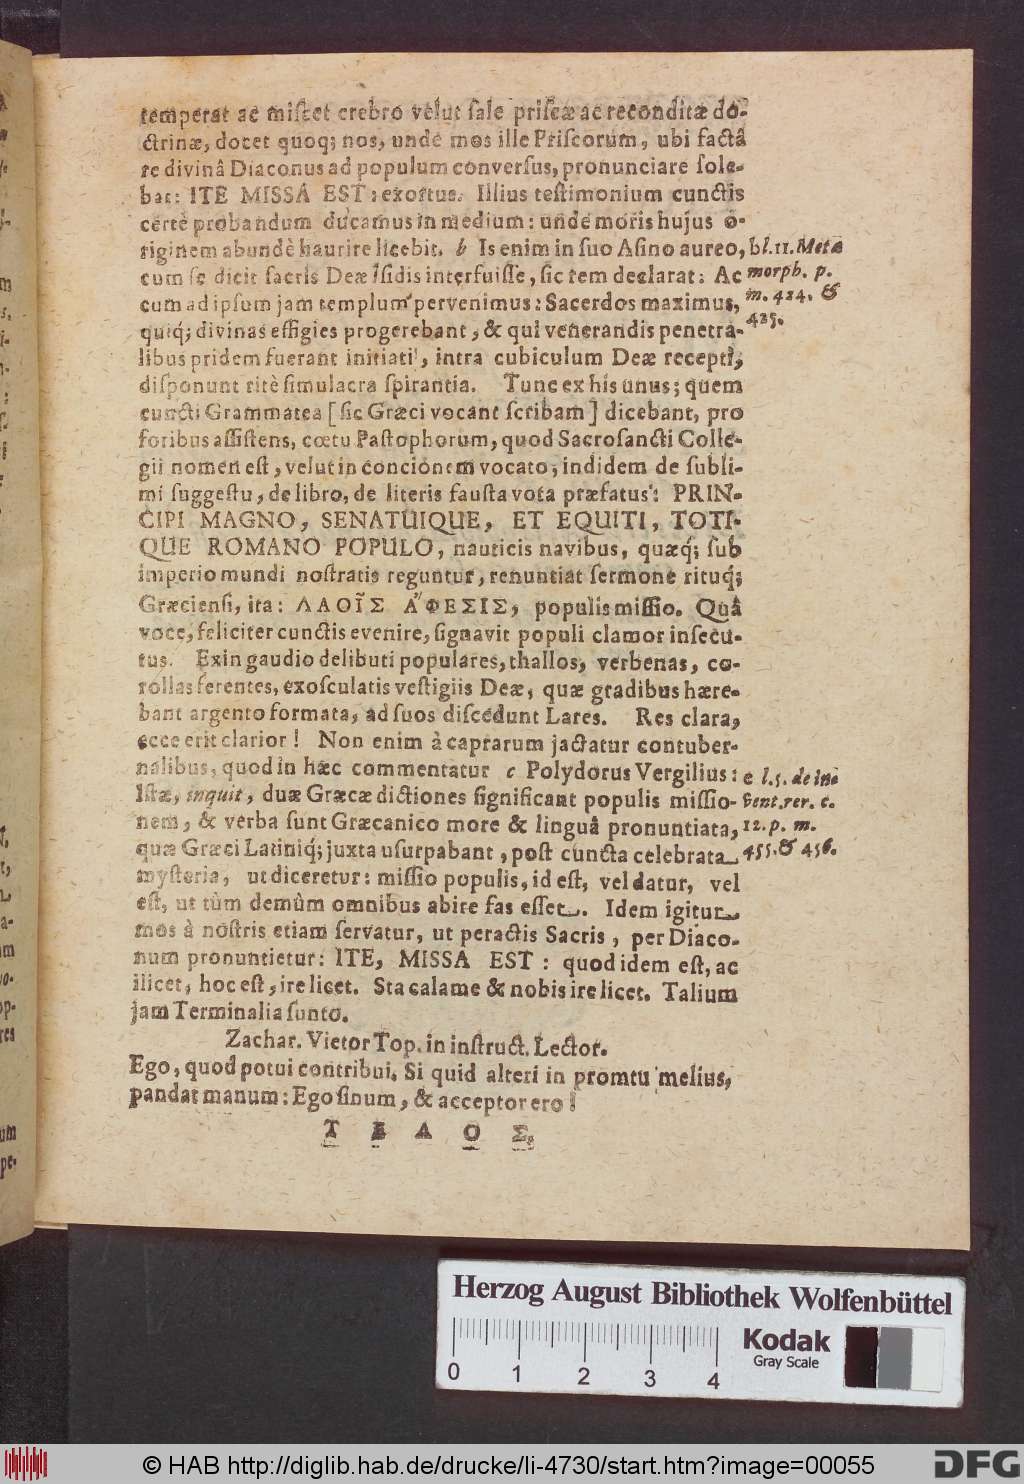 temperat ac miſcet crebro velut ſale priſcæ ac reconditæ do-
ctrinæ, docet quoq; nos, unde mos ille Priſcorum, ubi factâ
re divinâ Diaconus ad populum converſus, pronunciare ſole-
bat: ITE MISSA EST: exortus. Illius teſtimonium cunctis
certè probandum ducamus in medium: unde moris hujus o-
riginem abundè haurire licebit. b Is enim in ſuo Aſino aureo,
cum ſe dicit ſacris Deæ Iſidis interfuiſſe, ſic rem declarat: Ac
cum ad ipſum jam templum pervenimus: Sacerdos maximus,
quiq; divinas effigies progerebant, & qui venerandis penetra-
libus pridem fuerant initiati, intra cubiculum Deæ recepti,
diſponunt ritè ſimulacra ſpirantia. Tunc ex his unus; quem
cuncti Grammatea [ſic Græci vocant ſcribam] dicebant, pro
foribus aſſiſtens, cœtu Paſtophorum, quod Sacroſancti Colle-
gii nomen eſt, velut in concionem vocato, indidem de ſubli-
mi ſuggeſtu, de libro, de literis fauſta vota præfatus: PRIN-
CIPI MAGNO, SENATUIQUE, ET EQUITI, TOTI-
QUE ROMANO POPULO, nauticis navibus, quæq; ſub
imperio mundi noſtratis reguntur, renuntiat ſermone rituq;
Græcienſi, ita: ΛΑΟΙ͂Σ ἌΦΕΣΙΣ, populis miſſio. Quâ
voce, feliciter cunctis evenire, ſignavit populi clamor inſecu-
tus. Exin gaudio delibuti populares, thallos, verbenas, co-
rollas ferentes, exoſculatis veſtigiis Deæ, quæ gradibus hære-
bant argento formata, ad ſuos diſcedunt Lares. Res clara,
ecce erit clarior! Non enim à caprarum jactatur contuber-
nalibus, quod in hæc commentatur c Polydorus Vergilius:
Iſtæ, inquit, duæ Græcæ dictiones ſignificant populis miſſio-
nem, & verba ſunt Græcanico more & linguâ pronuntiata,
quæ Græci Latiniq; juxta uſurpabant, poſt cuncta celebrata
myſteria, ut diceretur: miſſio populis, id eſt, vel datur, vel
eſt, ut tùm demûm omnibus abire fas eſſet. Idem igitur
mos à noſtris etiam ſervatur, ut peractis Sacris, per Diaco-
num pronuntietur: ITE, MISSA EST: quod idem eſt, ac
ilicet, hoc eſt, ire licet. Sta calame & nobis ire licet. Talium
jam Terminalia ſunto.
Zachar. Vietor Top. in inſtruct. Lector.
Ego, quod potui contribui. Si quid alteri in promtu melius,
pandat manum: Ego ſinum, & acceptor ero!
ΤΕΛΟΣ.
b l. 11. Meta
morph. p.
m. 424. &
425.
c l. 5. de in
vent. rer. c.
12. p. m.
455. & 456.
Herzog August Bibliothek Wolfenbüttel
0 1 2 3 4
Kodak
Gray Scale
© HAB http://diglib.hab.de/drucke/li-4730/start.htm?image=00055
DFG